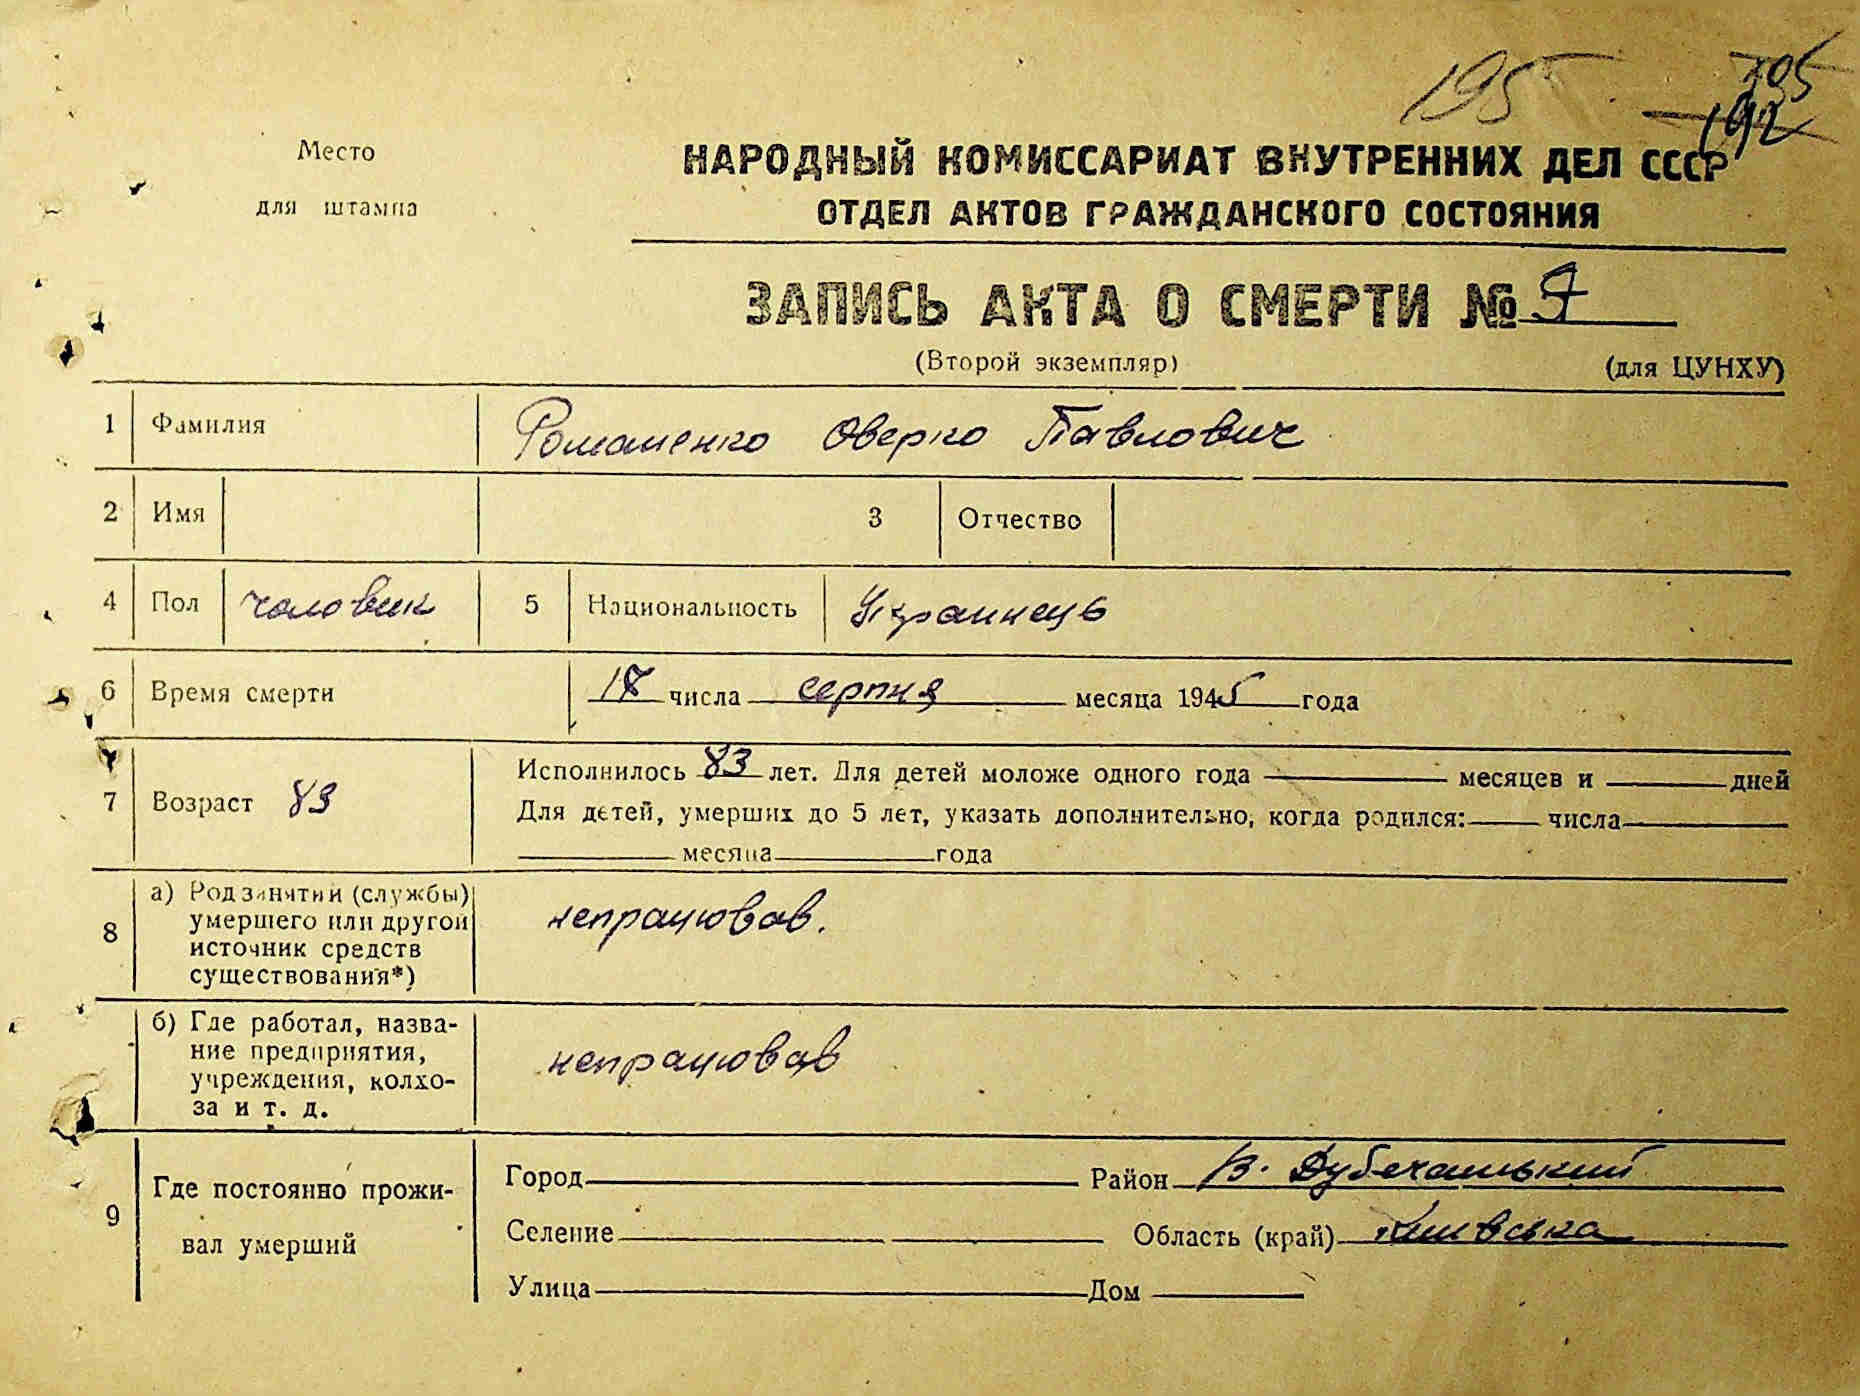 195 105
192
Место
для штампа
НАРОДНЫЙ КОМИССАРИАТ ВНУТРЕННИХ ДЕЛ СССР
ОТДЕЛ АКТОВ ГРАЖДАНСКОГО СОСТОЯНИЯ
ЗАПИСЬ АКТА О СМЕРТИ №
(Второй экземпляр) (для ЦУНХУ)
1 Фамилия Романенко Оверко Павлович
2 Имя 3 Отчество
4 Пол чоловик 5 Национальность Українець
6 Время смерти 18 числа серпня месяца 1945 года
Исполнилось 83 лет. Для детей моложе одного года месяцев и дней
7 Возраст 83 Для детей, умерших до 5 лет, указать дополнительно, когда родился: числа
месяца года
8 а) Род занятий (службы)
умершего или другой
источник средств
существования*)
непрацював.
б) Где работал, назва-
ние предприятия,
учреждения, колхо-
за и т. д.
непрацював
9 Где постоянно прожи-
вал умерший
Город Район В. Дубечанський
Селение Область (край) Київська
Улица Дом